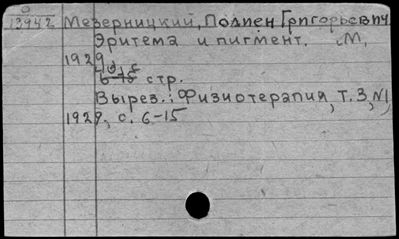 О
13942 Мезерницкий, Полиен Григорьевич
Эритема и пигмент. М,
1929,
6-15 стр.
Вырез.: Физиотерапия, Т. 3, №1,
1929, с. 6-15